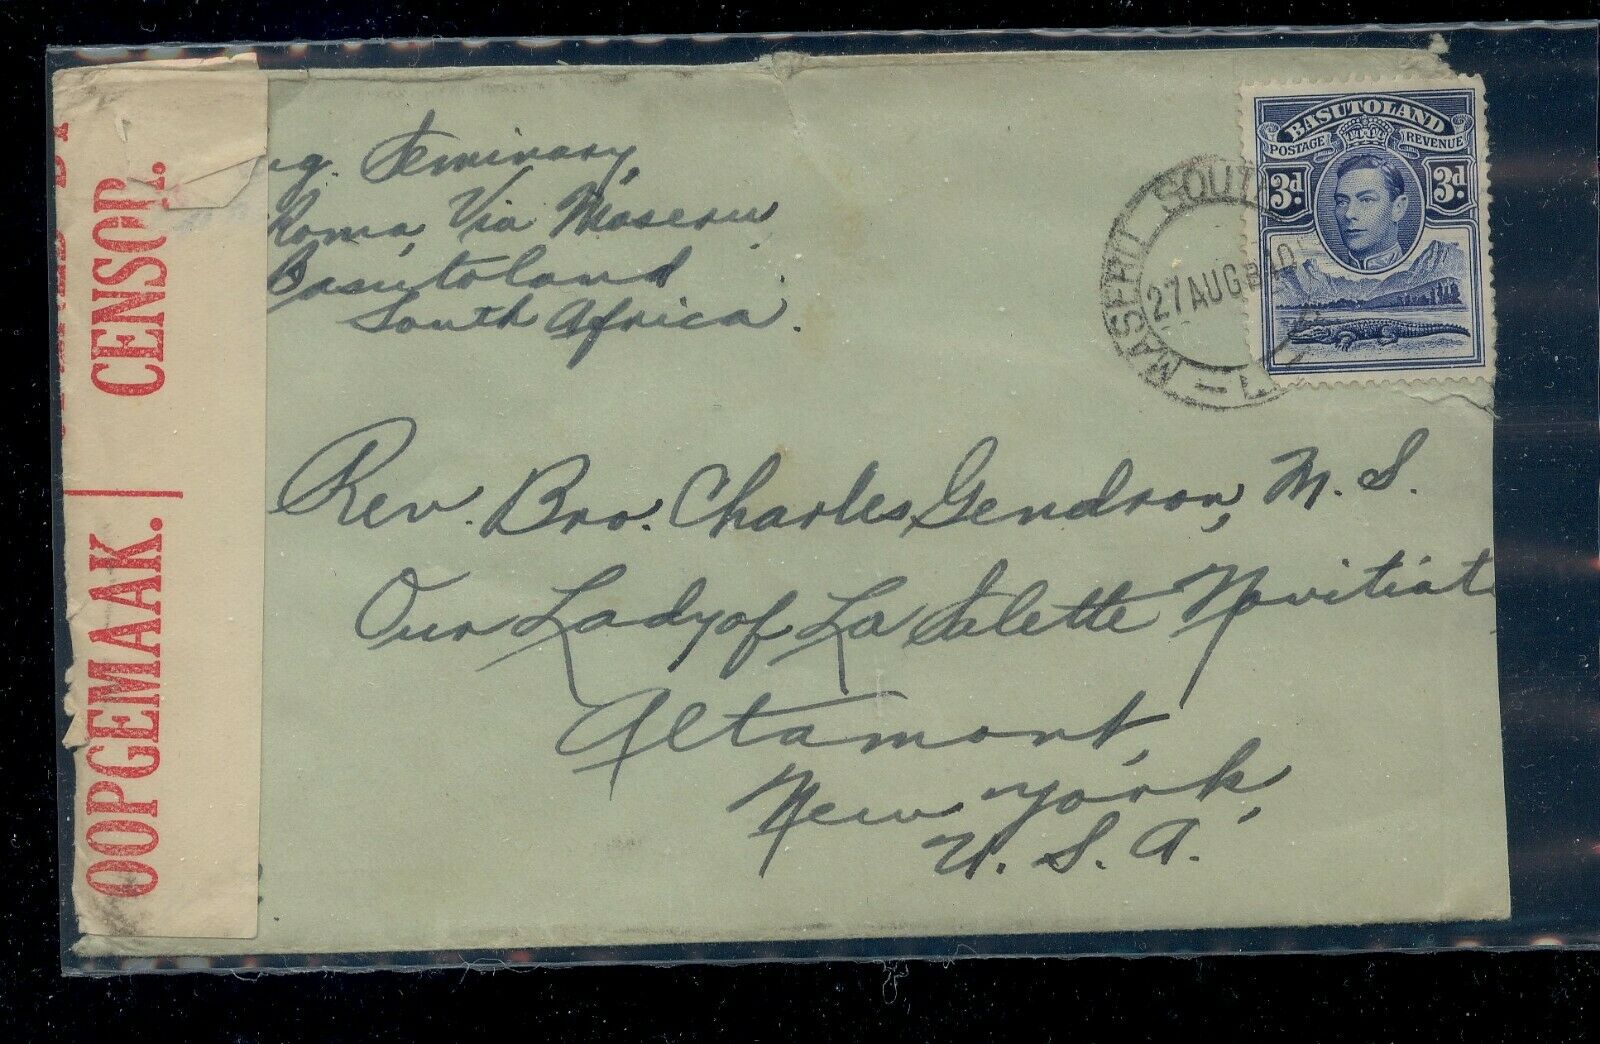 Seminary,
Roma, Via Maseru
Basutoland
South Africa.
BASUTOLAND
POSTAGE REVENUE
3d. 3d.
MASERU SOUT
27 AUG 40
Rev. Bro. Charles Gendron, M. S.
Our Lady of La Salette Novitiat
Altamont,
New York,
U. S. A.
CENSOR.
OOPGEMAAK.